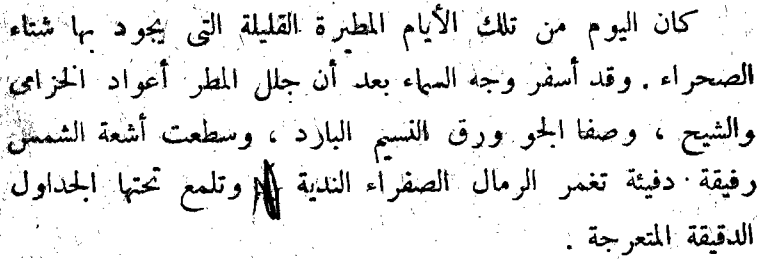 كان اليوم من تلك الأيام المطيرة القليلة التى يجود بها شتاء
الصحراء . وقد أسفر وجه السماء بعد أن جلل المطر أعواد الخزامى
والشيح ، وصفا الجو ورق النسيم البارد ، وسطعت أشعة الشمس
رفيقة دفيئة تغمر الرمال الصفراء الندية وتلمع تحتها الجداول
الدقيقة المتعرجة .